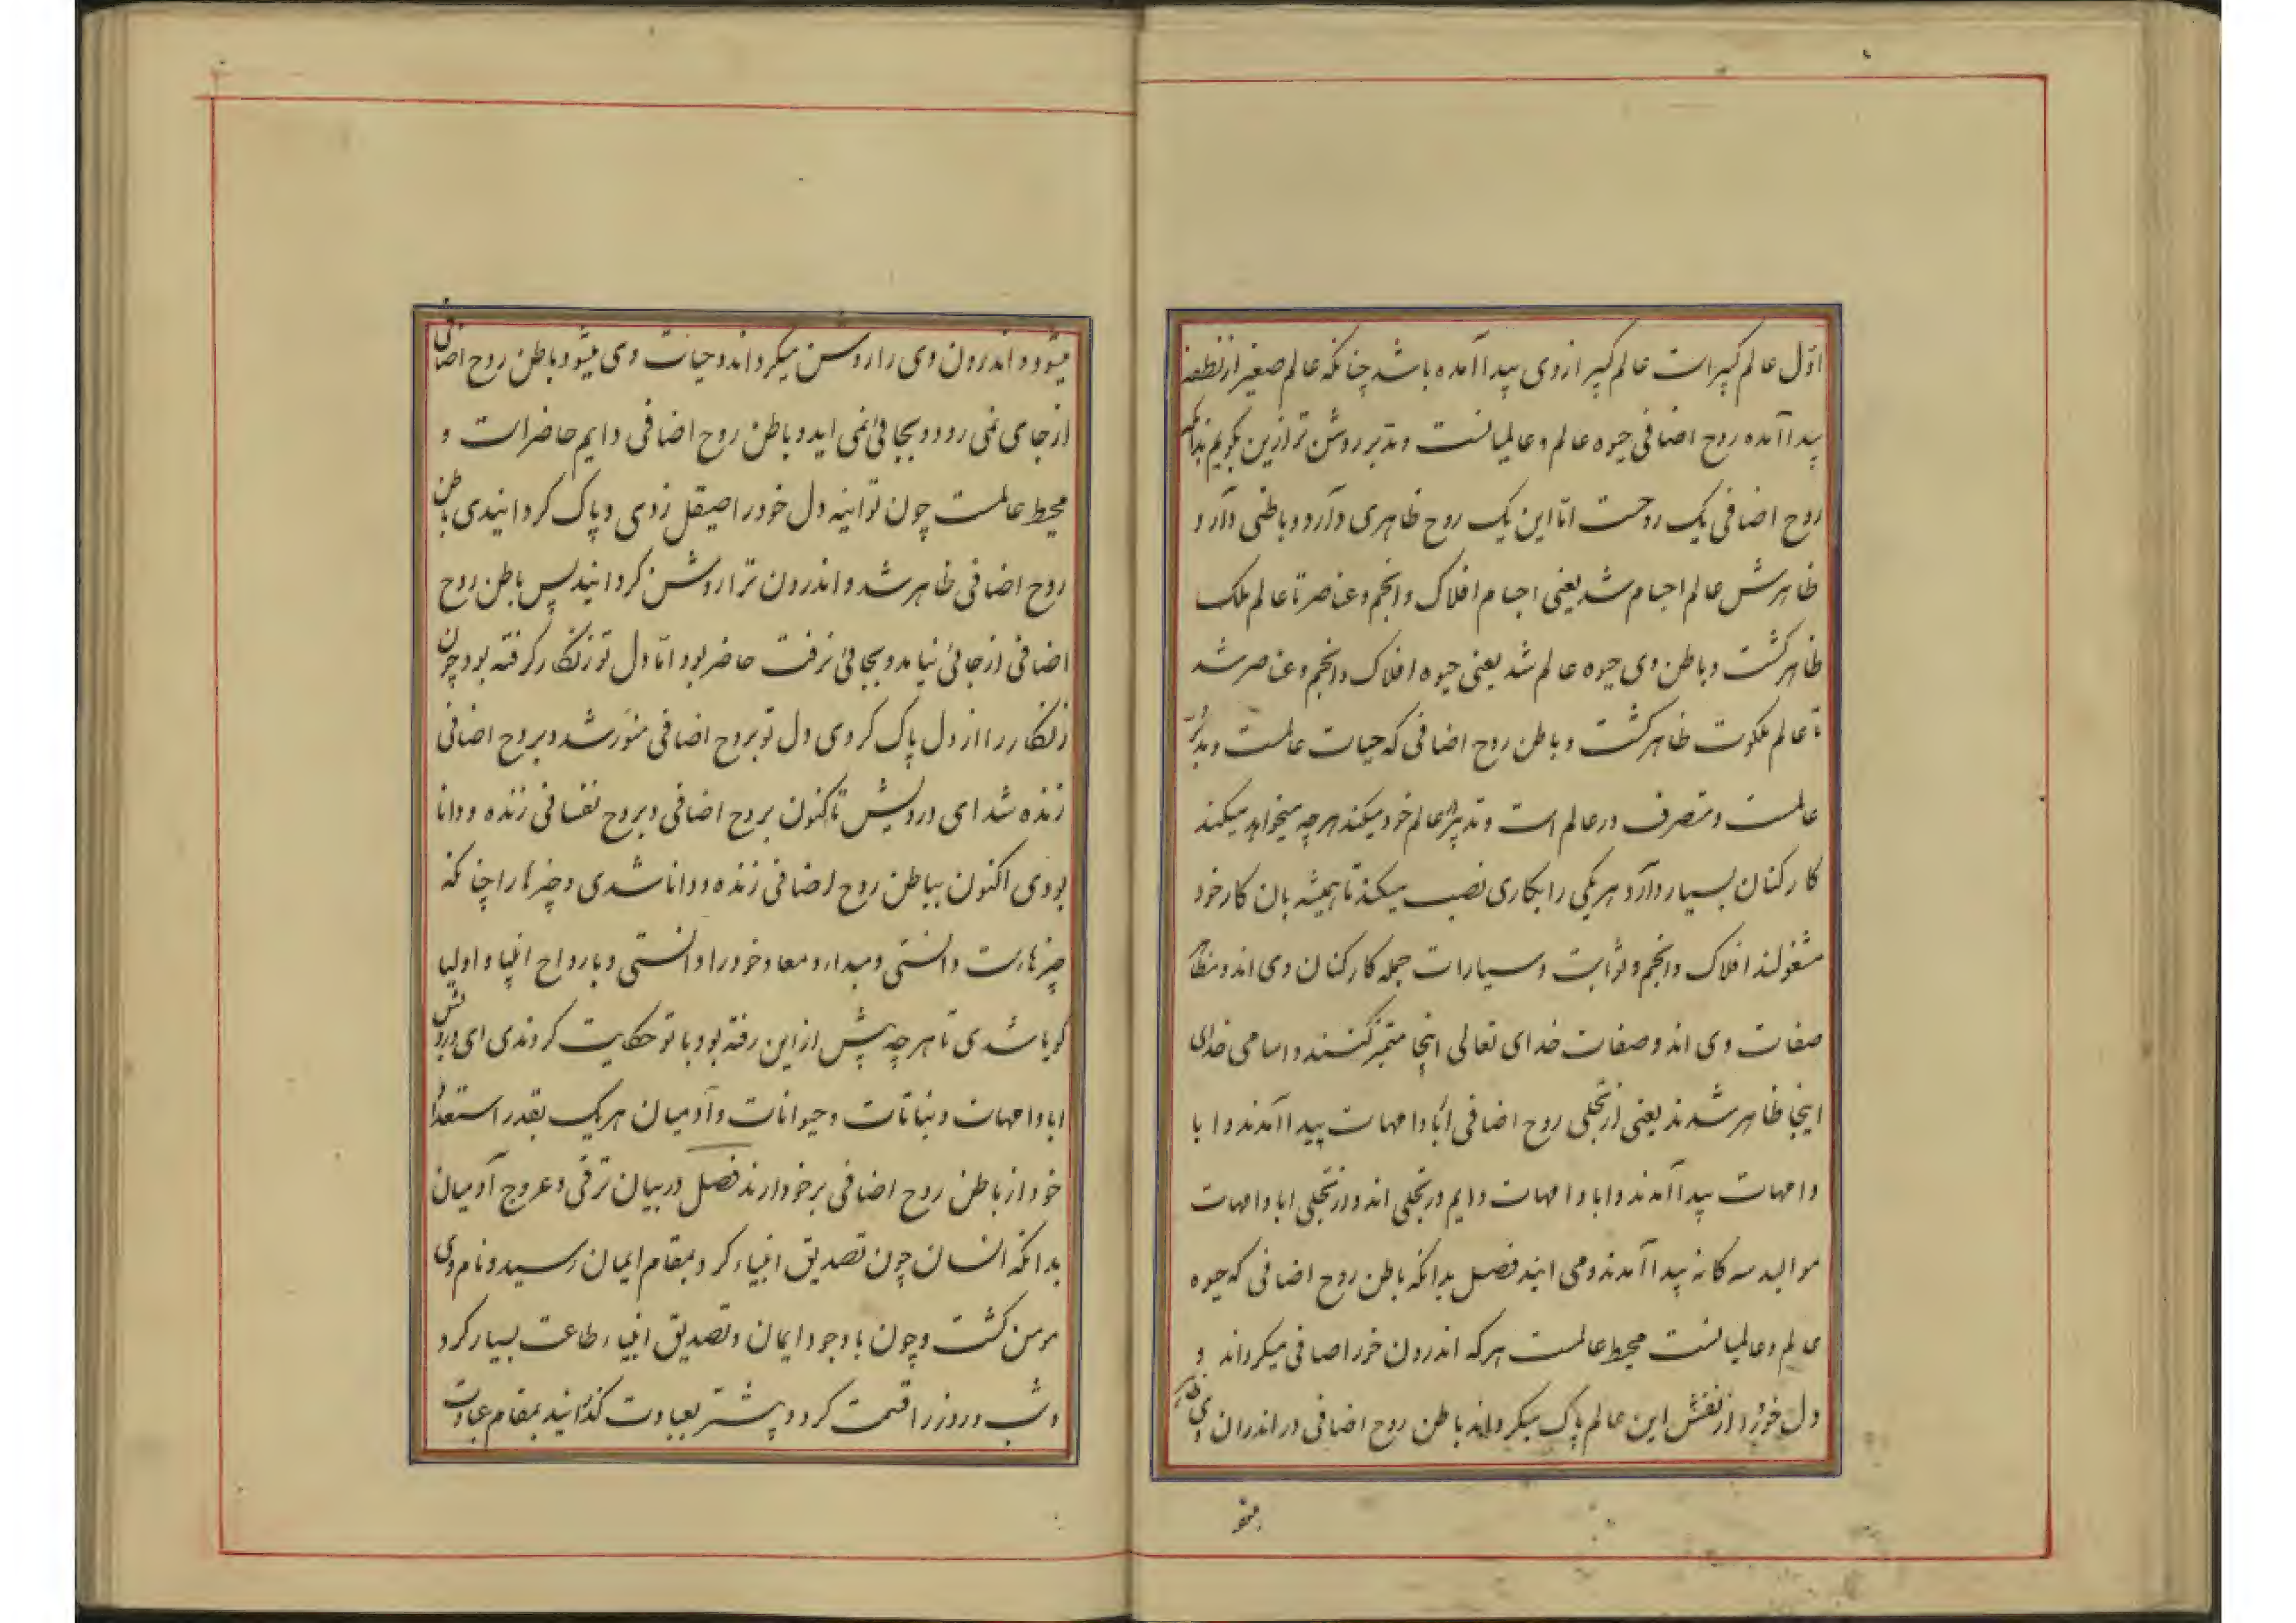 اوّل عالم کبیر است عالم کبیر از وی پیدا آمده باشد چنانکه عالم صغیر از نطفه
پیدا آمده روح اضافی حیوه عالم و عالمیانست و مدبر روشن تر ازین بکویم بدانکه
روح اضافی یک روحست امّا این یک روح ظاهری دارد و باطنی دارد
ظاهرش عالم اجسام شد یعنی اجسام افلاک و انجم و عناصر تا عالم ملک
ظاهر کشت و باطن وی حیوه عالم شد یعنی حیوه افلاک و انجم و عناصر شد
تا عالم ملکوت ظاهر کشت و باطن روح اضافی که حیات عالمست و مدبر
عالمست و متصرف در عالم است و تدبیر عالم خود میکند هر چه میخواهد میکند
کارکنان بسیار دارد هر یکی را بکاری نصب میکند تا همیشه بان کار خود
مشغولند افلاک و انجم و ثوابت و سیارات جمله کارکنان وی اند و مظاهر
صفات وی اند و صفات خدای تعالی اینجا متمیز کشتند و اسامی خدای
اینجا ظاهر شدند یعنی از تجلی روح اضافی ابا و امهات پیدا آمدند و ابا
و امهات پیدا آمدند و ابا و امهات دایم در تجلی اند و از تجلی ابا و امهات
موالید سه کانه پیدا آمدند و می ایند فصل بدانکه باطن روح اضافی که حیوه
عالم و عالمیانست محیط عالمست هر که اندرون خود را صافی میکرداند و
دل خود را از نقش این عالم پاک میکرداند باطن روح اضافی در اندران وی ظاهر
میشود و اندرون وی را روشن میکرداند و حیات وی میشود و باطن روح اضافی
از جای نمی رود و بجائی نمی اید و باطن روح اضافی دایم حاضر است و
محیط عالمست چون تو اینه دل خود را صیقل زدی و پاک کردانیدی باطن
روح اضافی ظاهر شد و اندرون ترا روشن کردانید پس باطن روح
اضافی از جائی نیامد و بجائی نرفت حاضر بود امّا دل تو زنکار کرفته بود چون
زنکار را از دل پاک کردی دل تو بروح اضافی منوّر شد و بروح اضافی
زنده شد ای درویش تاکنون بروح اضافی و بروح نفسانی زنده و دانا
بودی اکنون بباطن روح اضافی زنده و دانا شدی و چیزها را چنانکه
چیزهاست دانستی و مبداء و معاد خود را دانستی و با رواح انبیا و اولیا
کویا شدی تا هر چه پیش از این رفته بود با تو حکایت کردندی ای درویش
ابا و امهات و نباتات و حیوانات و آدمیان هر یک بقدر استعداد
خود از باطن روح اضافی برخوردارند فصل در بیان ترقی و عروج آدمیان
بدانکه انسان چون تصدیق انبیاء کرد بمقام ایمان رسید و نام وی
مومن کشت و چون با وجود ایمان و تصدیق انبیاء طاعت بسیار کرد
و شب و روز را قسمت کرد و پیشتر بعبادت کذرانید بمقام عبادت